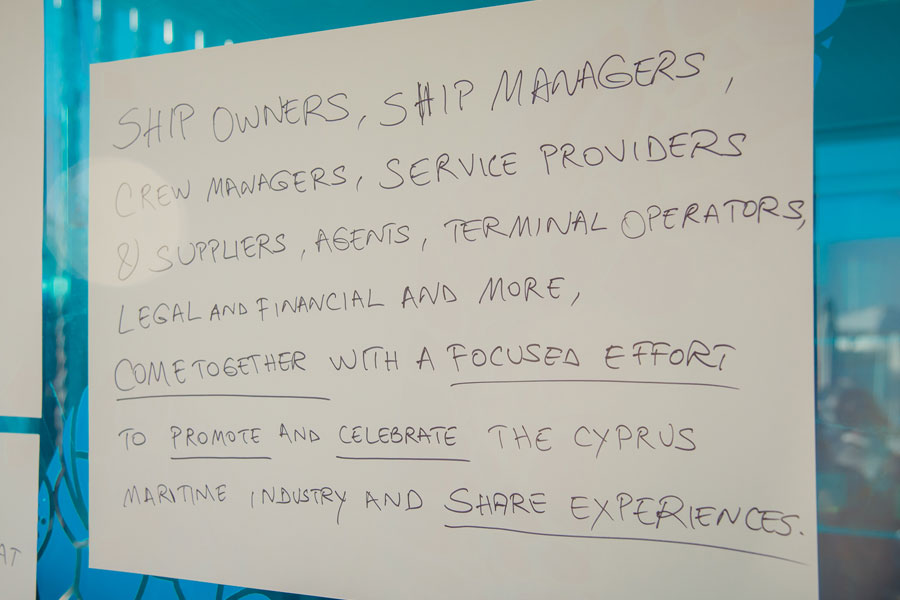 SHIP OWNERS, SHIP MANAGERS,
CREW MANAGERS, SERVICE PROVIDERS
& SUPPLIERS, AGENTS, TERMINAL OPERATORS,
LEGAL AND FINANCIAL AND MORE,
COME TOGETHER WITH A FOCUSED EFFORT
TO PROMOTE AND CELEBRATE THE CYPRUS
MARITIME INDUSTRY AND SHARE EXPERIENCES.